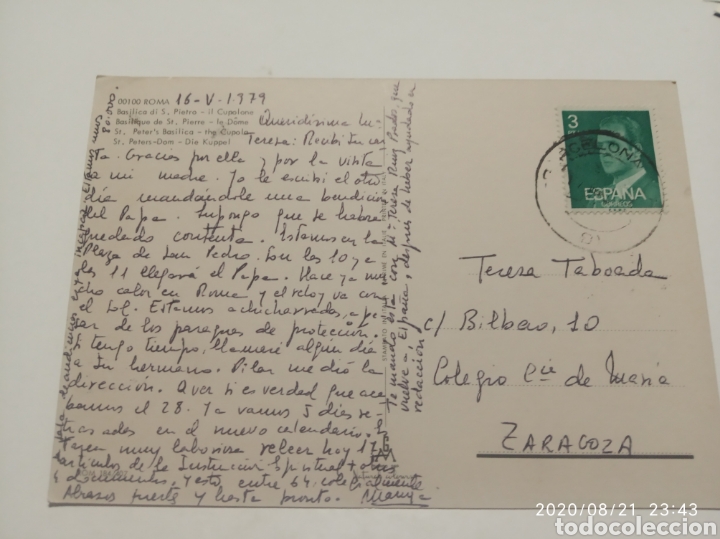 00100 ROMA 16-V-1979
Basilica di S. Pietro - il Cupolone
Basilique de St. Pierre - le Dôme
St. Peter's Basilica - the Cupola
St. Peters-Dom - Die Kuppel
Queridísima Mª
Teresa: Recibí tu car
ta. Gracias por ella y por la visita
a mi madre. Yo le escribí el otro
día mandándole una bendición
del Papa. Supongo que se habrá
quedado contenta. Estamos en la
Plaza de San Pedro. Son las 10 y a
las 11 llegará el Papa. Hace ya mu
cho calor en Roma y el reloj va con
el sol. Estamos achicharradas, a pe
sar de los paraguas de protección.
Si tengo tiempo, llamaré algún día
a tu hermano. Pilar me dió la
dirección. Quer si es verdad que aca
bamos el 28. Ya vamos 5 días re
trasadas en el nuevo calendario.
Tarea muy laboriosa releer hoy 17
artículos de la
4 documentos, y esto entre 64
Abrazos fuerte y hasta pronto.
Te mando esta con Mª Teresa Ruiz Prados que
vuelve a España, después de haber ayudado en
redacción
3
PTA
ESPAÑA
CORREOS
BARCELONA
Teresa Taboada
c/ Bilbao, 10
Colegio Cía de María
ZARAGOZA
2020/08/21 23:43
todocoleccion